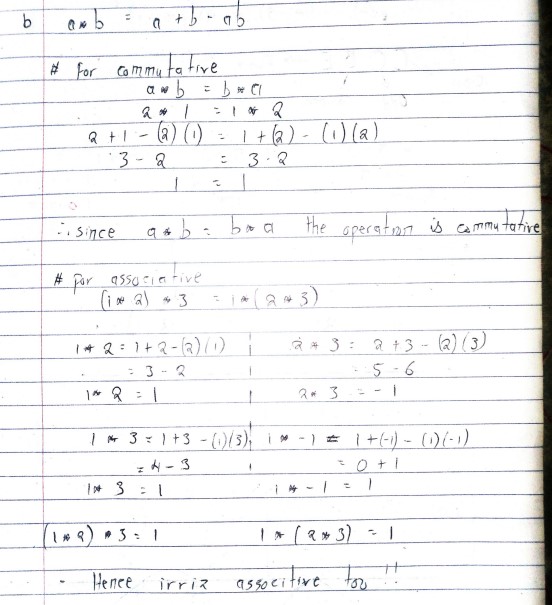 b a*b = a + b - ab
# for commutative
a*b = b*a
2 * 1 = 1 * 2
2 + 1 - (2)(1) = 1 + (2) - (1)(2)
3 - 2 = 3 - 2
1 = 1
∴ since a*b = b*a the operation is commutative
# for associative
(1*2) * 3 = 1*(2*3)
1*2 = 1+2-(2)(1) 2*3 = 2+3-(2)(3)
= 3 - 2 = 5 - 6
1*2 = 1 2*3 = -1
1*3 = 1+3-(1)(3) 1*-1 = 1+(-1)-(1)(-1)
= 4 - 3 = 0 + 1
1*3 = 1 1*-1 = 1
(1*2)*3 = 1 1*(2*3) = 1
- Hence irriz associtive too!!